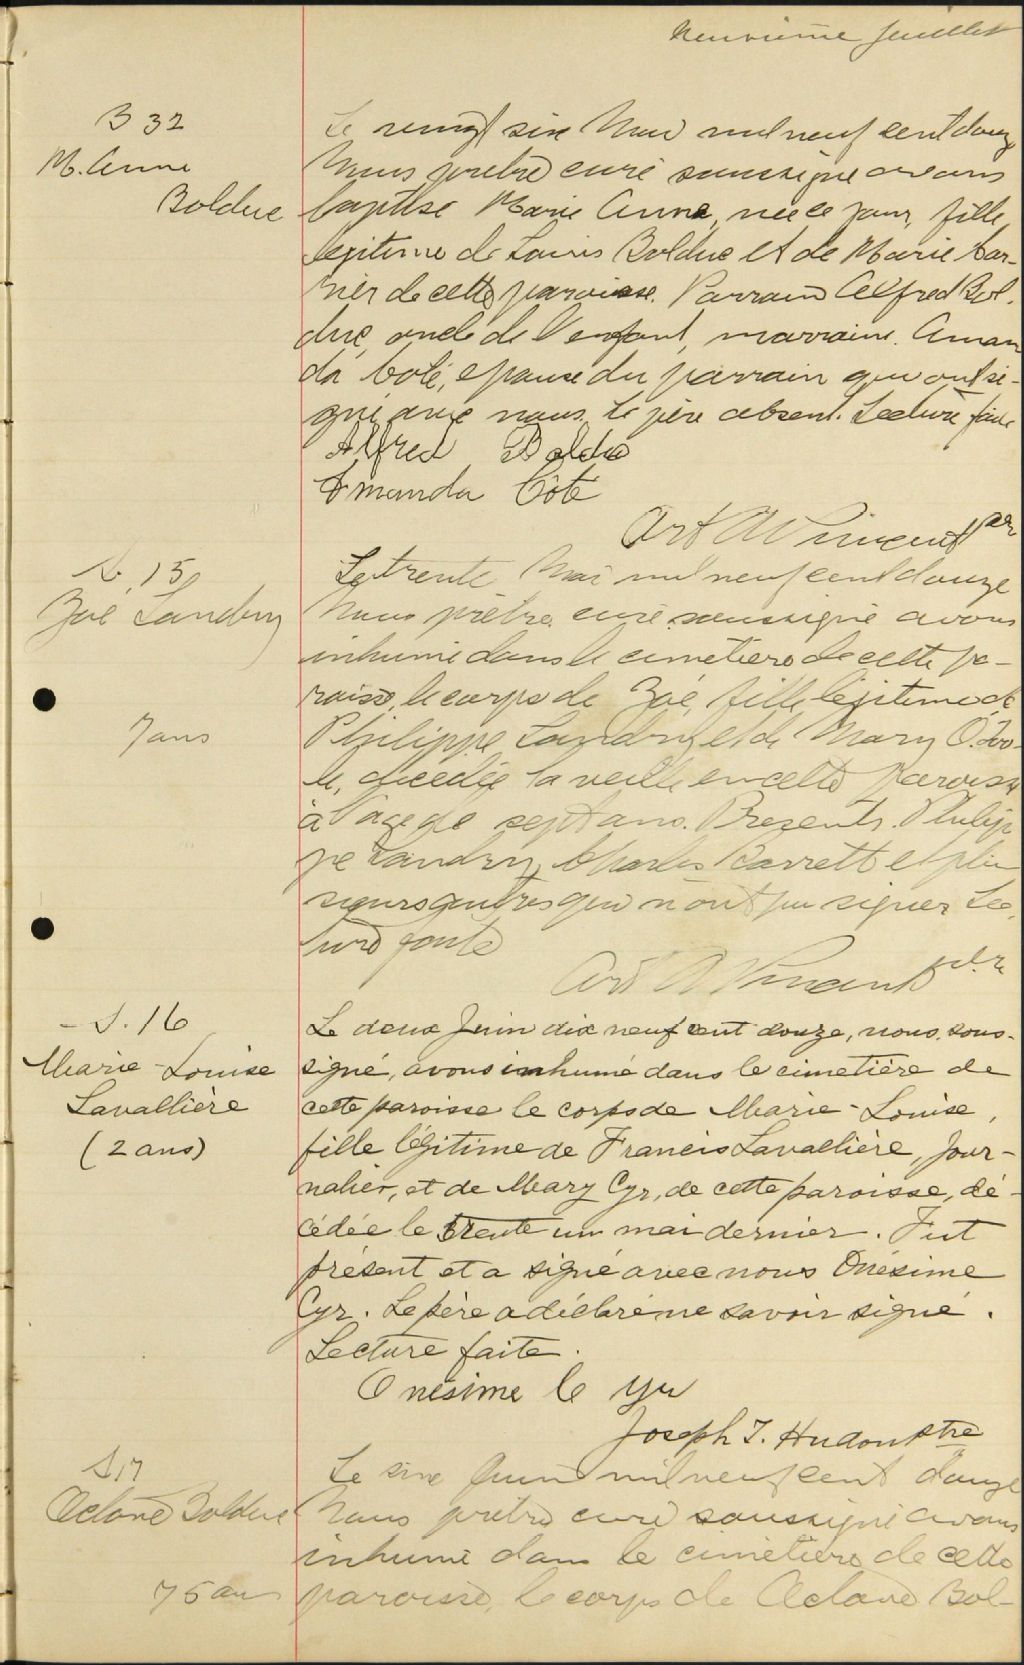 Neuvième feuillet
B 32
M. Anne
Bolduc
Le vingt six Mai mil neuf cent douze
Nous prêtre curé soussigné avons
baptisé Marie Anna, née ce jour, fille
légitime de Louis Bolduc et de Marie Car-
rier de cette paroisse. Parrain Alfred Bol-
duc, oncle de l'enfant, marraine. Aman
da Coté, epouse du parrain qui ont si-
gné avec nous, le père absent. Lecture faite
Alfred Boldu
Amanda Côté
Art W Vincent ptre
S. 15
Zoé Landry
7 ans
Le trente Mai mil neuf cent douze
Nous prêtre curé soussigné avons
inhumé dans le cimetière de cette pa-
roisse, le corps de Zoé, fille légitime de
Philippe Landry et de Mary
le, décédée la veille en cette paroisse
à l'age de sept ans. Presents. Philip
pe Landry, Charles Barrett et plu
sieurs autres qui n'ont pu signer Lec
ture faite
Art W Vincent ptre
- S. 16
Marie-Louise
Lavallière
(2 ans)
Le deux Juin dix neuf cent douze, nous, sous-
signé, avons inhumé dans le cimetière de
cette paroisse le corps de Marie-Louise,
fille légitime de Francis Lavallière, Jour-
nalier, et de Mary Cyr, de cette paroisse, dé-
cédée le trente un mai dernier. Fut
présent et a signé avec nous Onésime
Cyr. Le père a déclaré ne savoir signé.
Lecture faite.
Onésime Cyr
Joseph T. Hudon ptre
S 17
Octave Bolduc
75 ans
Le six Juin mil neuf cent douze
Nous prêtre curé soussigné avons
inhumé dans le cimetière de cette
paroisse, le corps de Octave Bol-